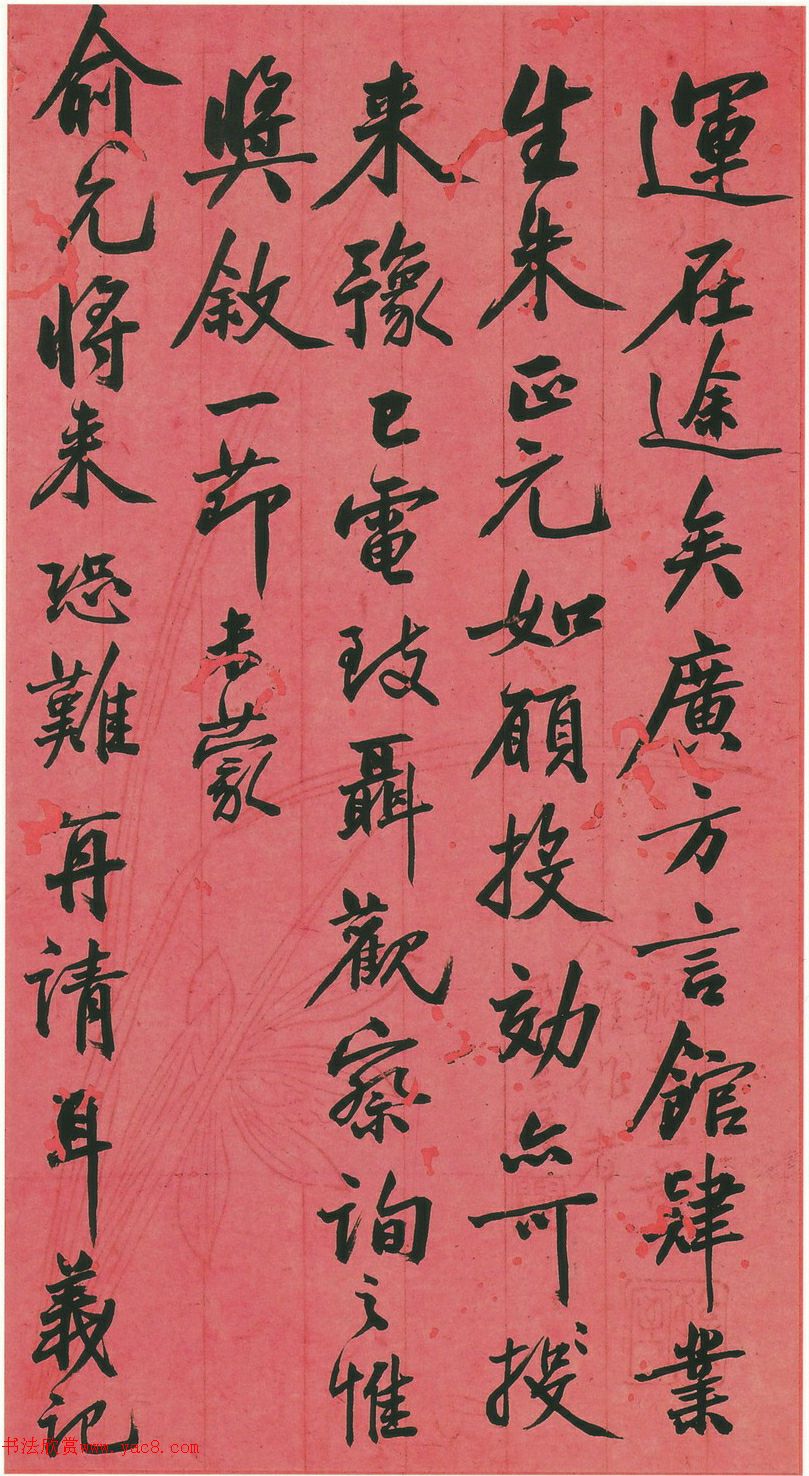 運在途矣廣方言館肄業
生朱正元如願投効亦可投
来豫已電致聶觀察詢之惟
奬敘一節未蒙
俞允將来恐難再請耳義記
书法欣赏www.yac8.com